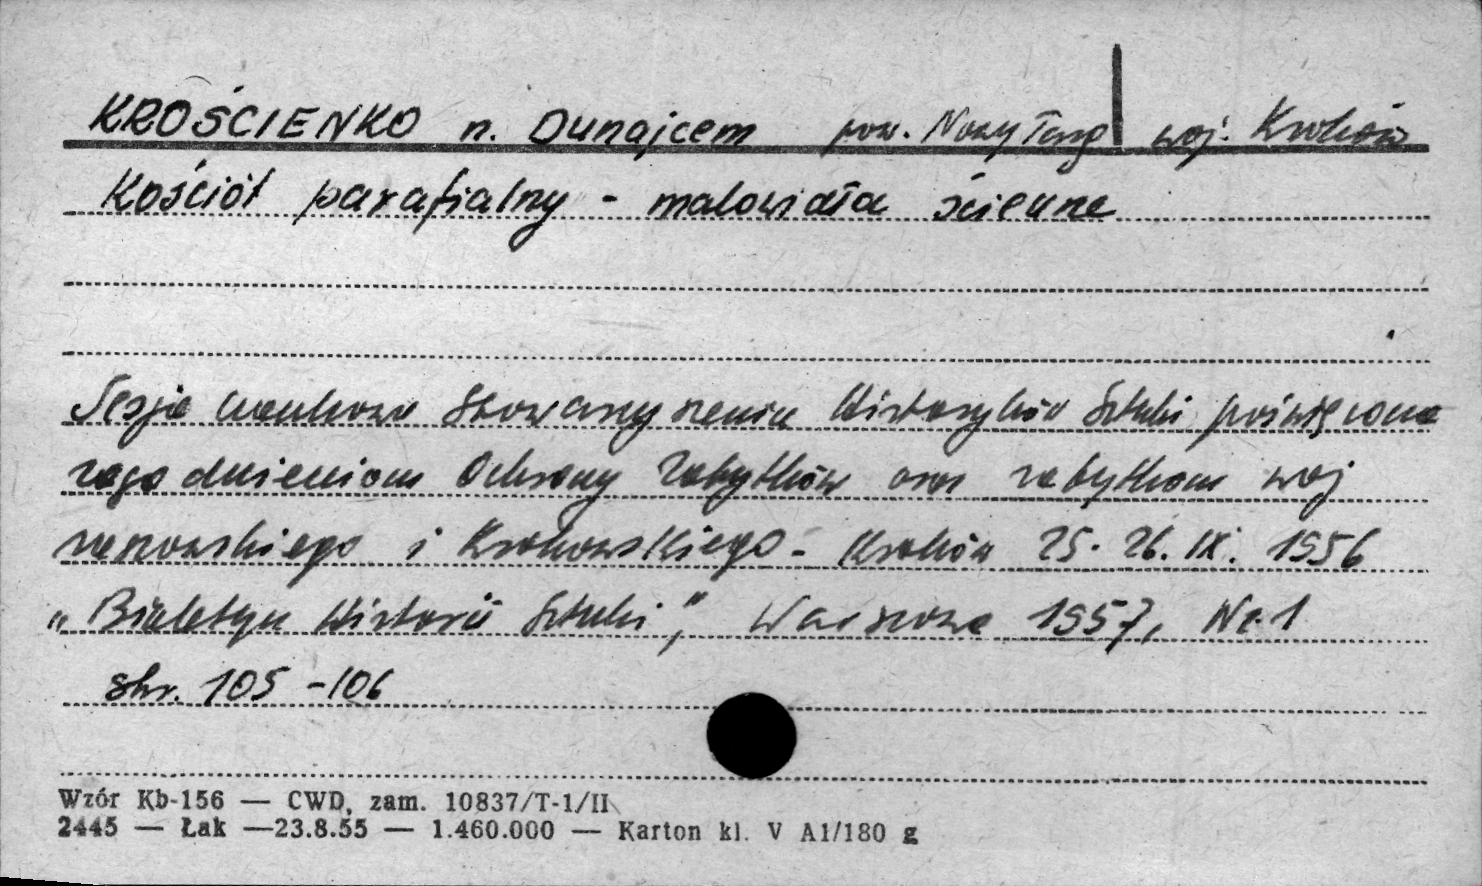 KROŚCIENKO n. Dunajcem pow. Nowy Targ woj. Kraków
Kościół parafialny - malowidła ścienne
Sesja naukowa Stowarzyszenia Historyków Sztuki poświęcona
zagadnieniom Ochrony Zabytków oraz zabytkom woj
rzeszowskiego i Krakowskiego - Kraków 25. 26. IX. 1956
„Biuletyn Historii Sztuki", Warszawa 1957, Nr. 1
str. 105 - 106
Wzór Kb-156 — CWD, zam. 10837/T-1/II
2445 — Łak —23.8.55 — 1.460.000 — Karton kl. V A1/180 g